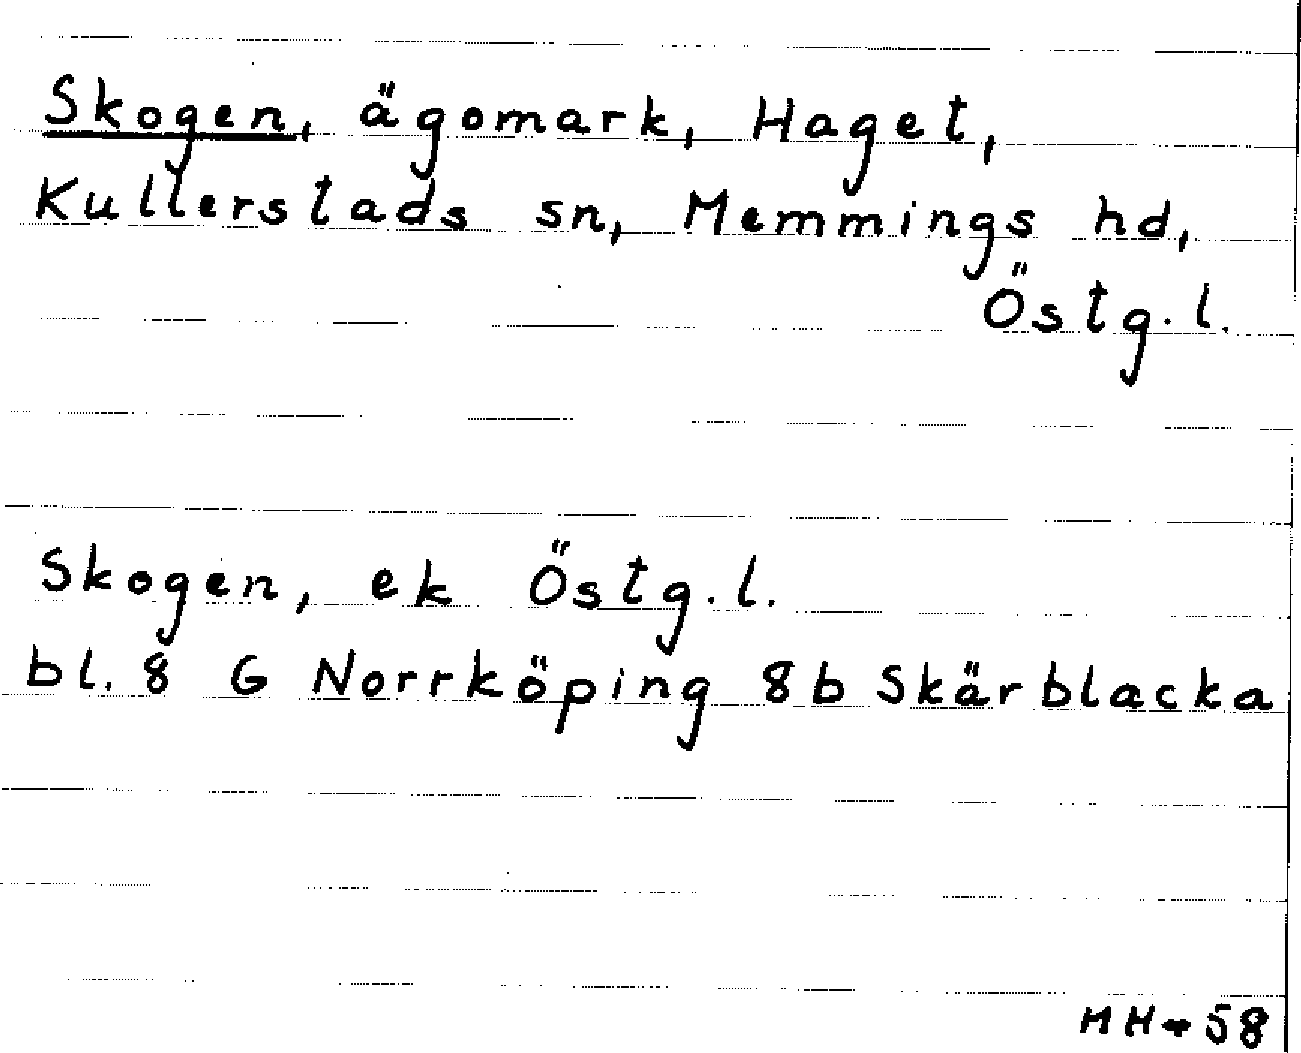 Skogen, ägomark, Haget,
Kullerstads sn, Memmings hd,
Östg.l.
Skogen, ek Östg.l.
bl. 8 G Norrköping 8b Skärblacka
MH-58